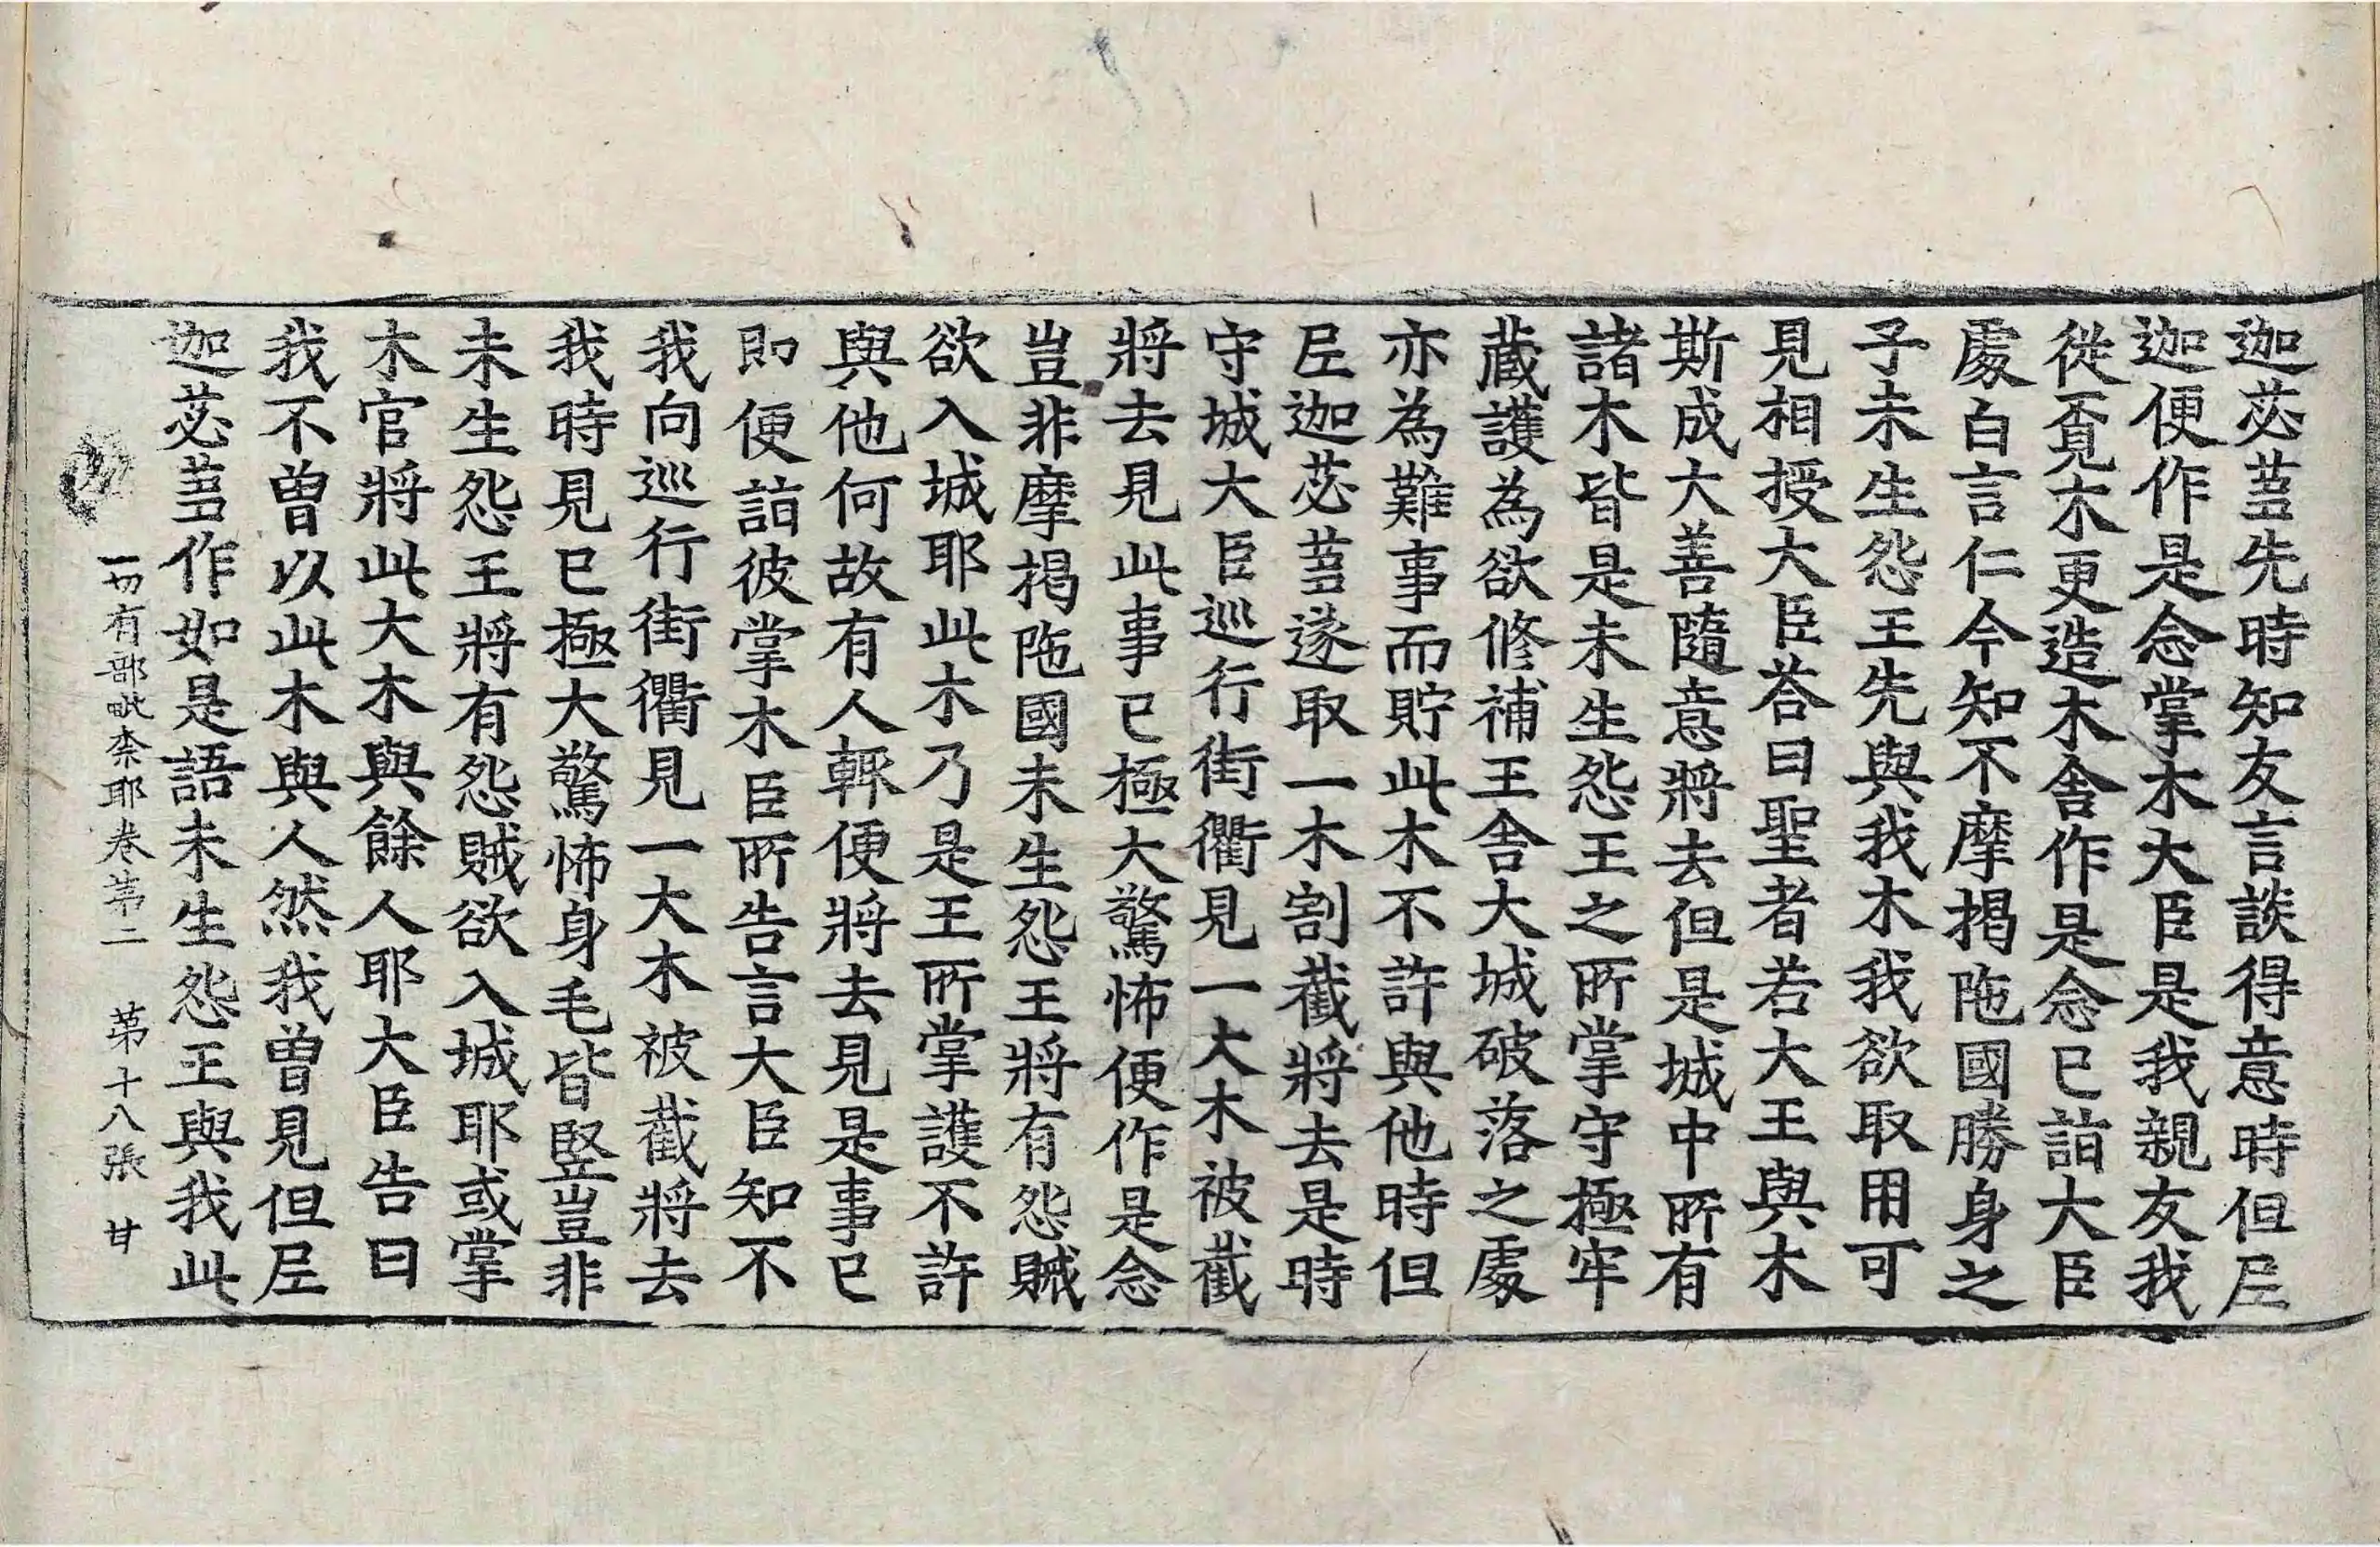 迦苾蒭先時知友言談得意時但𡰱
迦便作是念掌木大臣是我親友我
從覔木更造木舍作是念已詣大臣
處白言仁今知不摩揭陁國勝身之
子未生怨王先與我木我欲取用可
見相授大臣荅曰聖者若大王與木
斯成大善隨意將去但是城中所有
諸木皆是未生怨王之所掌守極牢
藏護為欲修補王舍大城破落之處
亦為難事而貯此木不許與他時但
𡰱迦苾蒭遂取一木割截將去是時
守城大臣巡行街衢見一大木被截
將去見此事已極大驚怖便作是念
豈非摩揭陁國未生怨王將有怨賊
欲入城耶此木乃是王所掌護不許
與他何故有人輙便將去見是事已
即便詣彼掌木臣所告言大臣知不
我向巡行街衢見一大木被截將去
我時見已極大驚怖身毛皆竪豈非
未生怨王將有怨賊欲入城耶或掌
木官將此大木與餘人耶大臣告曰
我不曾以此木與人然我曾見但𡰱
迦苾蒭作如是語未生怨王與我此
一切有部毗柰耶卷苐二　苐十八張　甘